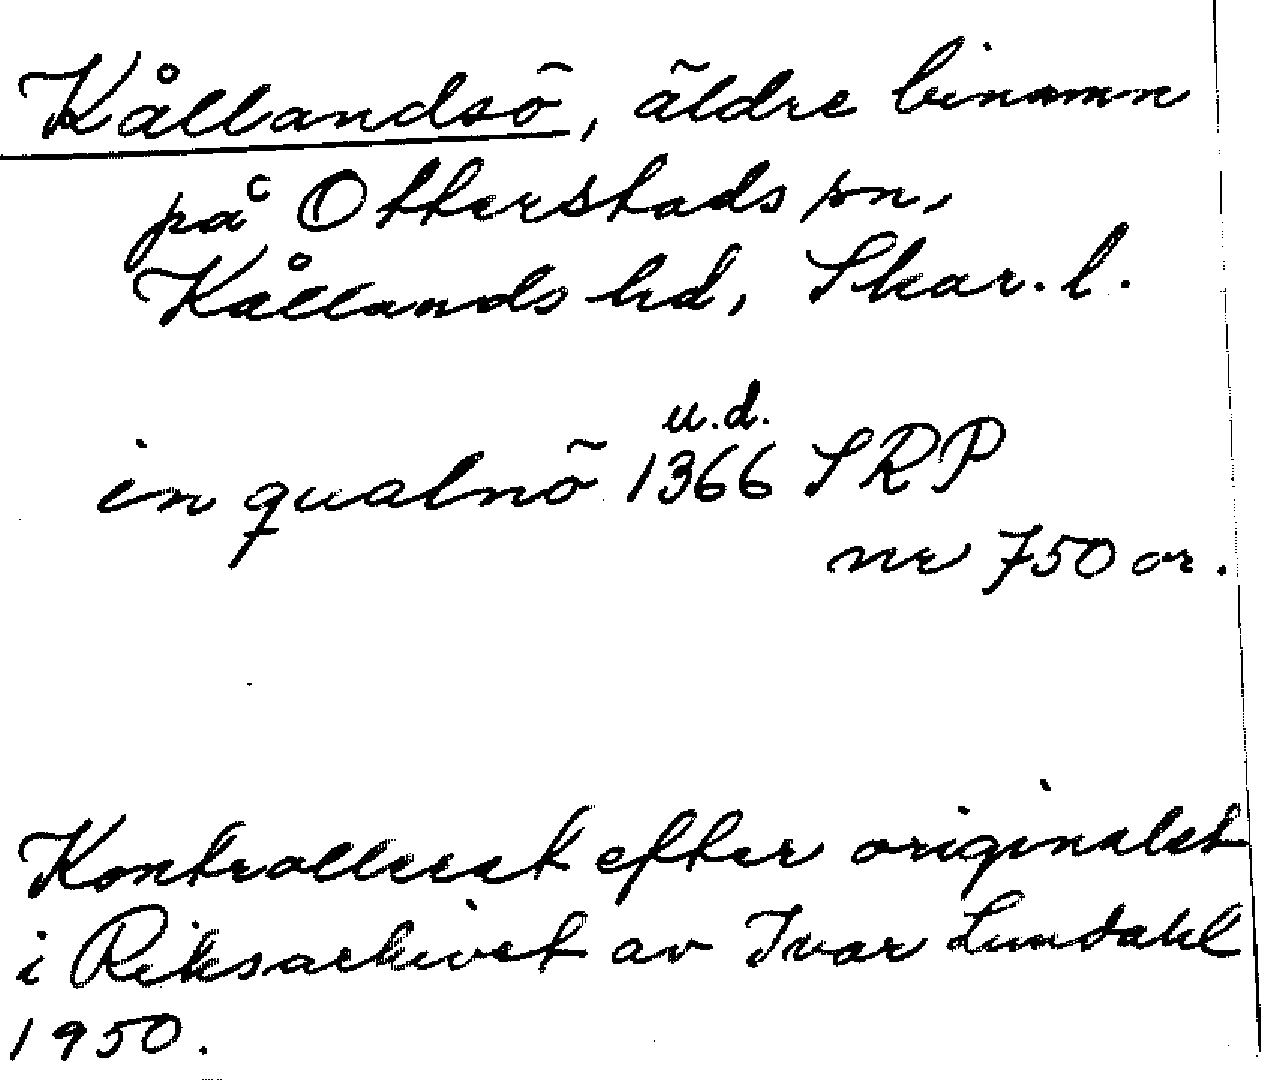 Kållandsö, äldre binamn
på Otterstads sn,
Kållands hd, Skar. l.
u.d.
in qualnö 1366 SRP
nr 750 or.
Kontrollerat efter originalet
i Riksarkivet av Ivar Lundahl
1950.